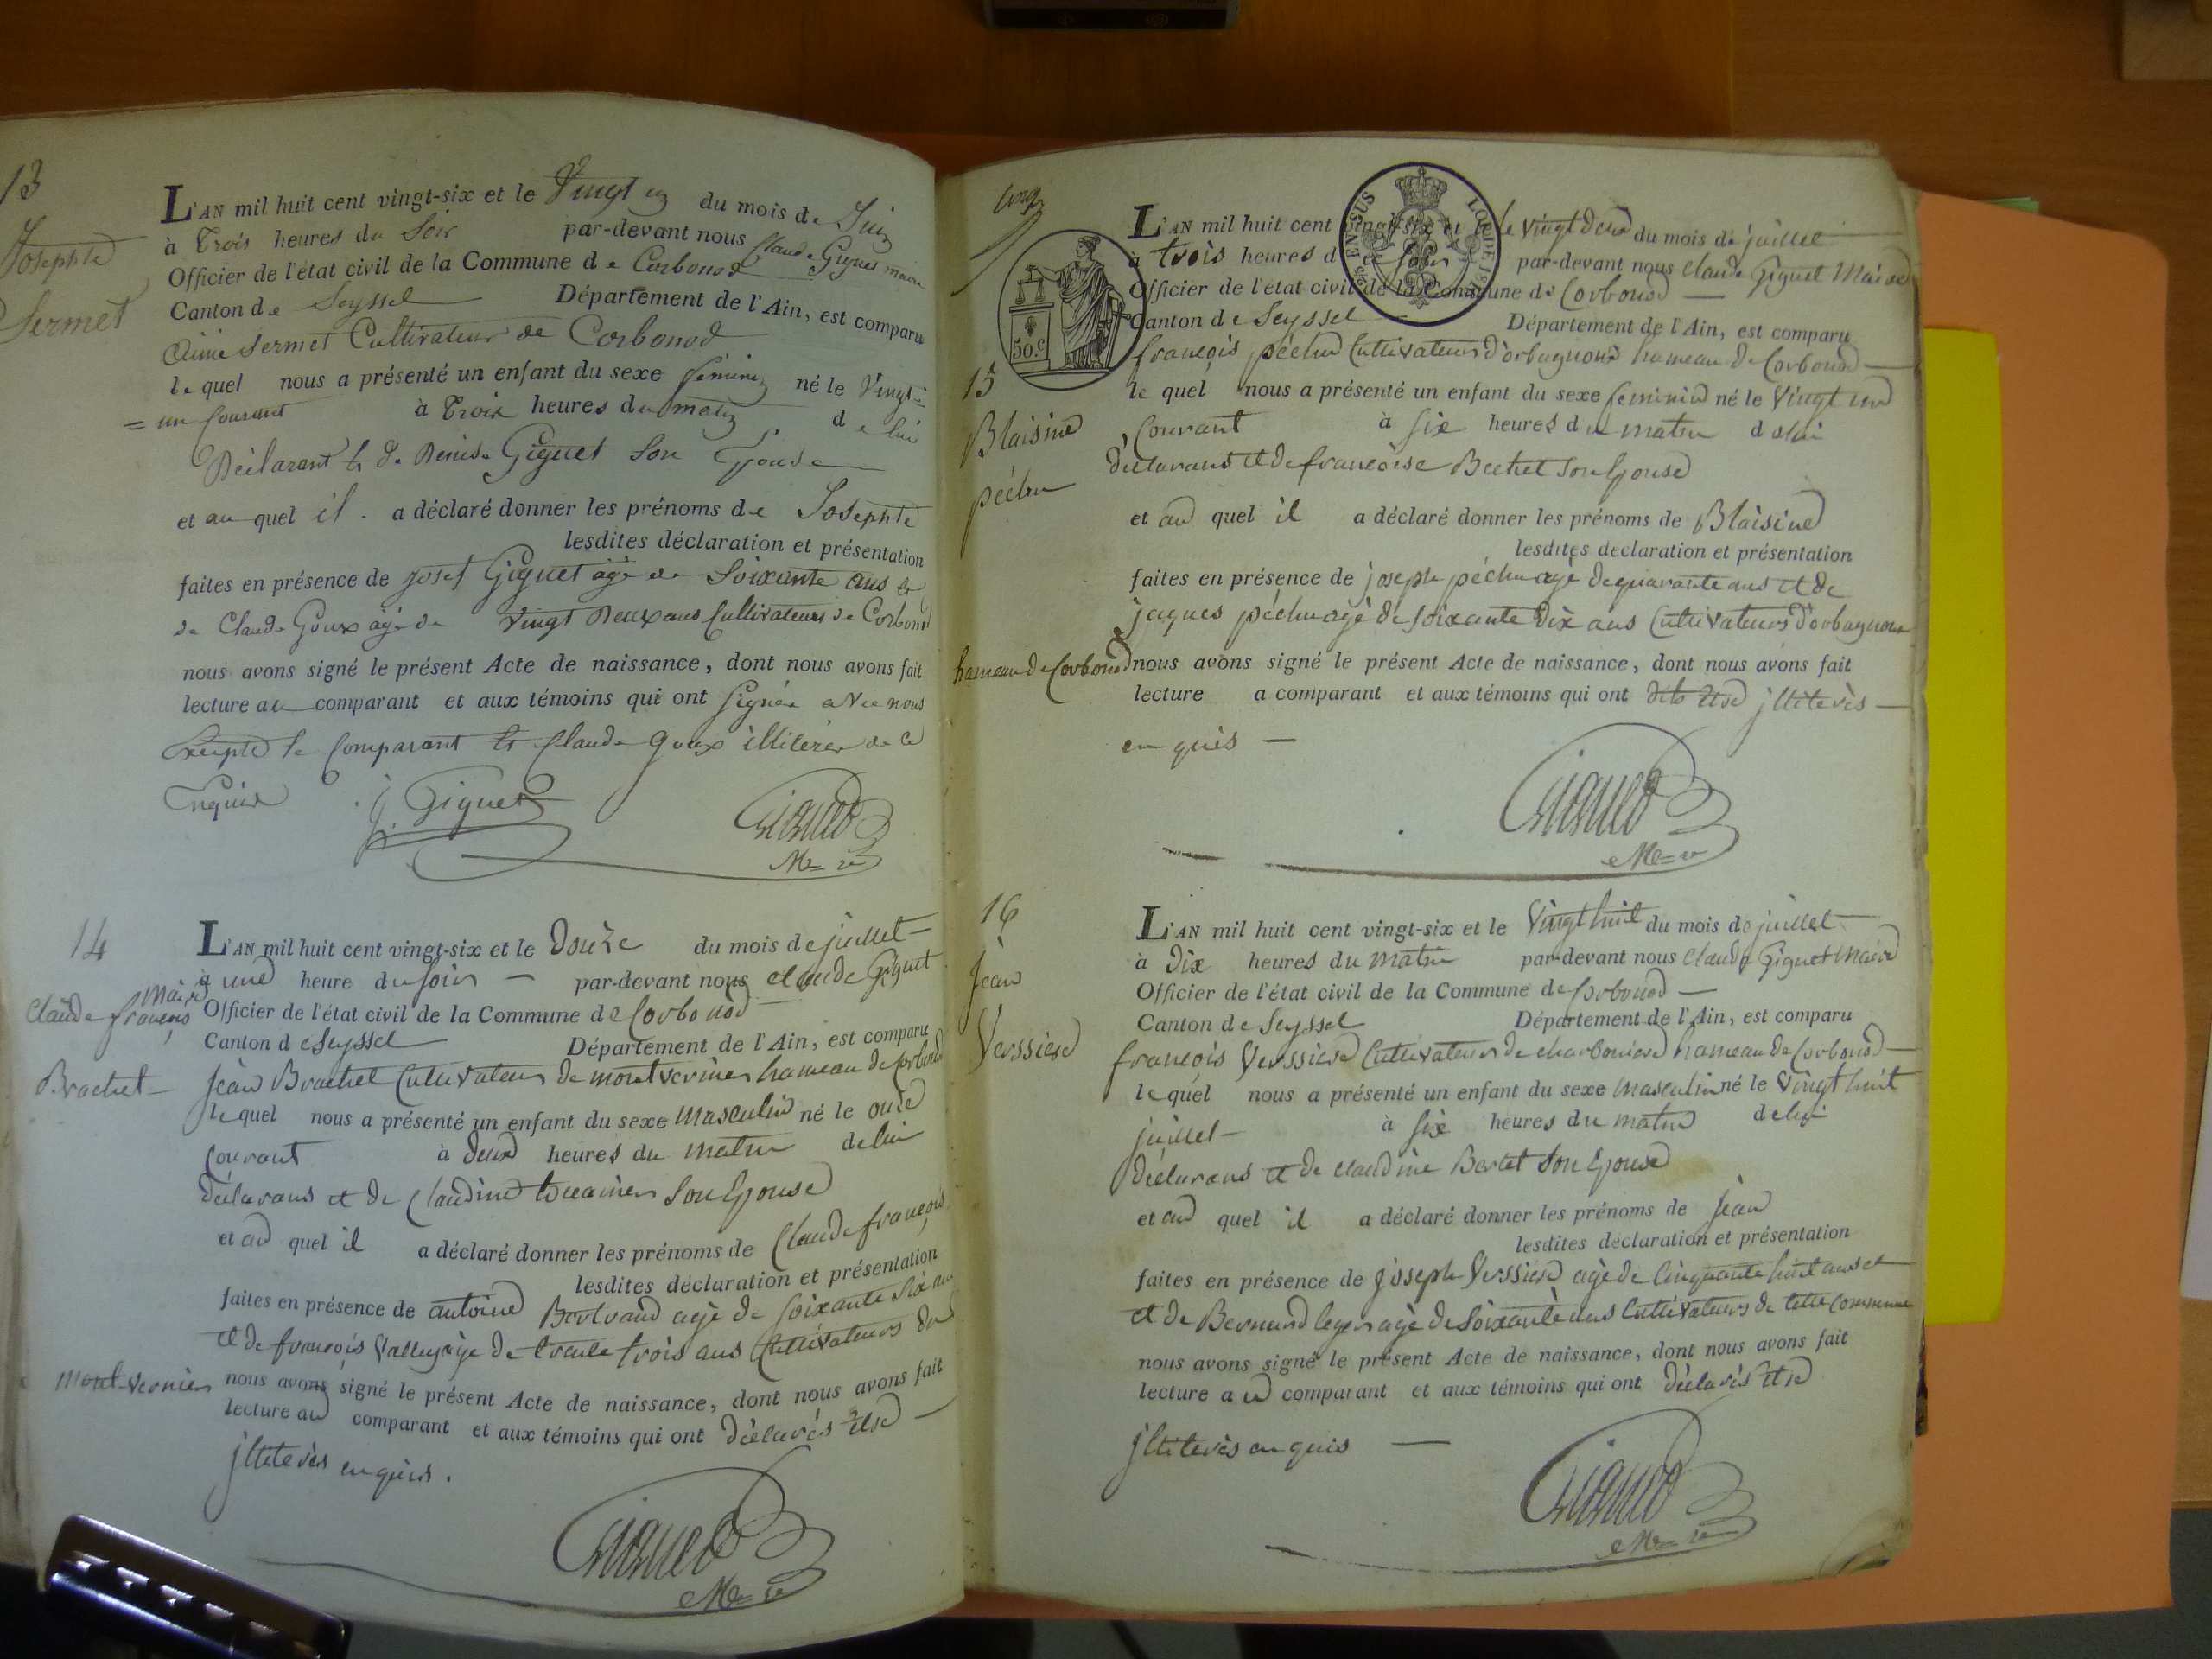 13
Josephte
Sermet
L'AN mil huit cent vingt-six et le Vingt un du mois de Juin
à Trois heures du Soir par-devant nous Claude Giguet maire
Officier de l'état civil de la Commune de Corbonod
Canton de Seyssel Département de l'Ain, est comparu
Aimé Sermet Cultivateur de Corbonod
le quel nous a présenté un enfant du sexe féminin né le Vingt=
=un Courant à Trois heures du matin de lui
Déclarant et de Denise Giguet Son Epouse
et au quel il a déclaré donner les prénoms de Josephte
lesdites déclaration et présentation
faites en présence de josef Giguet âgé de Soixante ans et
de Claude Goux âgé de vingt Deux ans Cultivateurs de Corbonod
nous avons signé le présent Acte de naissance, dont nous avons fait
lecture au comparant et aux témoins qui ont Signée avec nous
Excepté le Comparant et Claude Goux illitérés de ce
Enquis
J. Giguet Giguet
M=re
14
Claude françois
Brachet
L'AN mil huit cent vingt-six et le Douze du mois de juillet
à une heure du soir par-devant nous claude Giguet
Maire Officier de l'état civil de la Commune de Corbonod
Canton de Seyssel Département de l'Ain, est comparu
jean Brachet Cultivateur de montvernier hameau de Corbonod
le quel nous a présenté un enfant du sexe masculin né le onze
Courant à deux heures du matin de lui
déclarans et de Claudine son Epouse
et au quel il a déclaré donner les prénoms de Claude françois
lesdites déclaration et présentation
faites en présence de antoine Bertrand agé de soixante six ans
et de françois Vallet agé de trente trois ans Cultivateurs du
mont-vernier nous avons signé le présent Acte de naissance, dont nous avons fait
lecture au comparant et aux témoins qui ont déclarés être
jlliterés enquis.
Giguet
M=re
50.c
15
Blaisine
péchu
L'AN mil huit cent vingt-six et le vingt deux du mois de juillet
à trois heures du soir par-devant nous claude Giguet Maire
Officier de l'état civil de la Commune de Corbonod
Canton de Seyssel Département de l'Ain, est comparu
françois péchu Cultivateur d'orbagnoux hameau de Corbonod
le quel nous a présenté un enfant du sexe feminin né le Vingt un
Courant à six heures du matin de lui
déclarans et de françoise Bertet son Epouse
et au quel il a déclaré donner les prénoms de Blaisine
lesdites déclaration et présentation
faites en présence de joseph péchu agé de quarante ans et de
jaques péchu agé de soixante dix ans Cultivateurs d'orbagnoux
hameau de Corbonod nous avons signé le présent Acte de naissance, dont nous avons fait
lecture a comparant et aux témoins qui ont dits être jlliterés
enquis
Giguet
M=re
16
Jean
Verssiere
L'AN mil huit cent vingt-six et le Vingt huit du mois de juillet
à Dix heures du matin par-devant nous claude Giguet Maire
Officier de l'état civil de la Commune de Corbonod
Canton de Seyssel Département de l'Ain, est comparu
françois Verssiere Cultivateur de charboniere hameau de Corbonod
le quel nous a présenté un enfant du sexe masculin né le Vingt huit
juillet à six heures du matin de lui
déclarans et de claudine Bertet son Epouse
et au quel il a déclaré donner les prénoms de jean
lesdites déclaration et présentation
faites en présence de joseph Verssiere agé de Cinquante huit ans et
et de Bernard agé de soixante ans Cultivateurs de cette Commune
nous avons signé le présent Acte de naissance, dont nous avons fait
lecture au comparant et aux témoins qui ont déclarés être
jlliterés enquis
Giguet
M=re